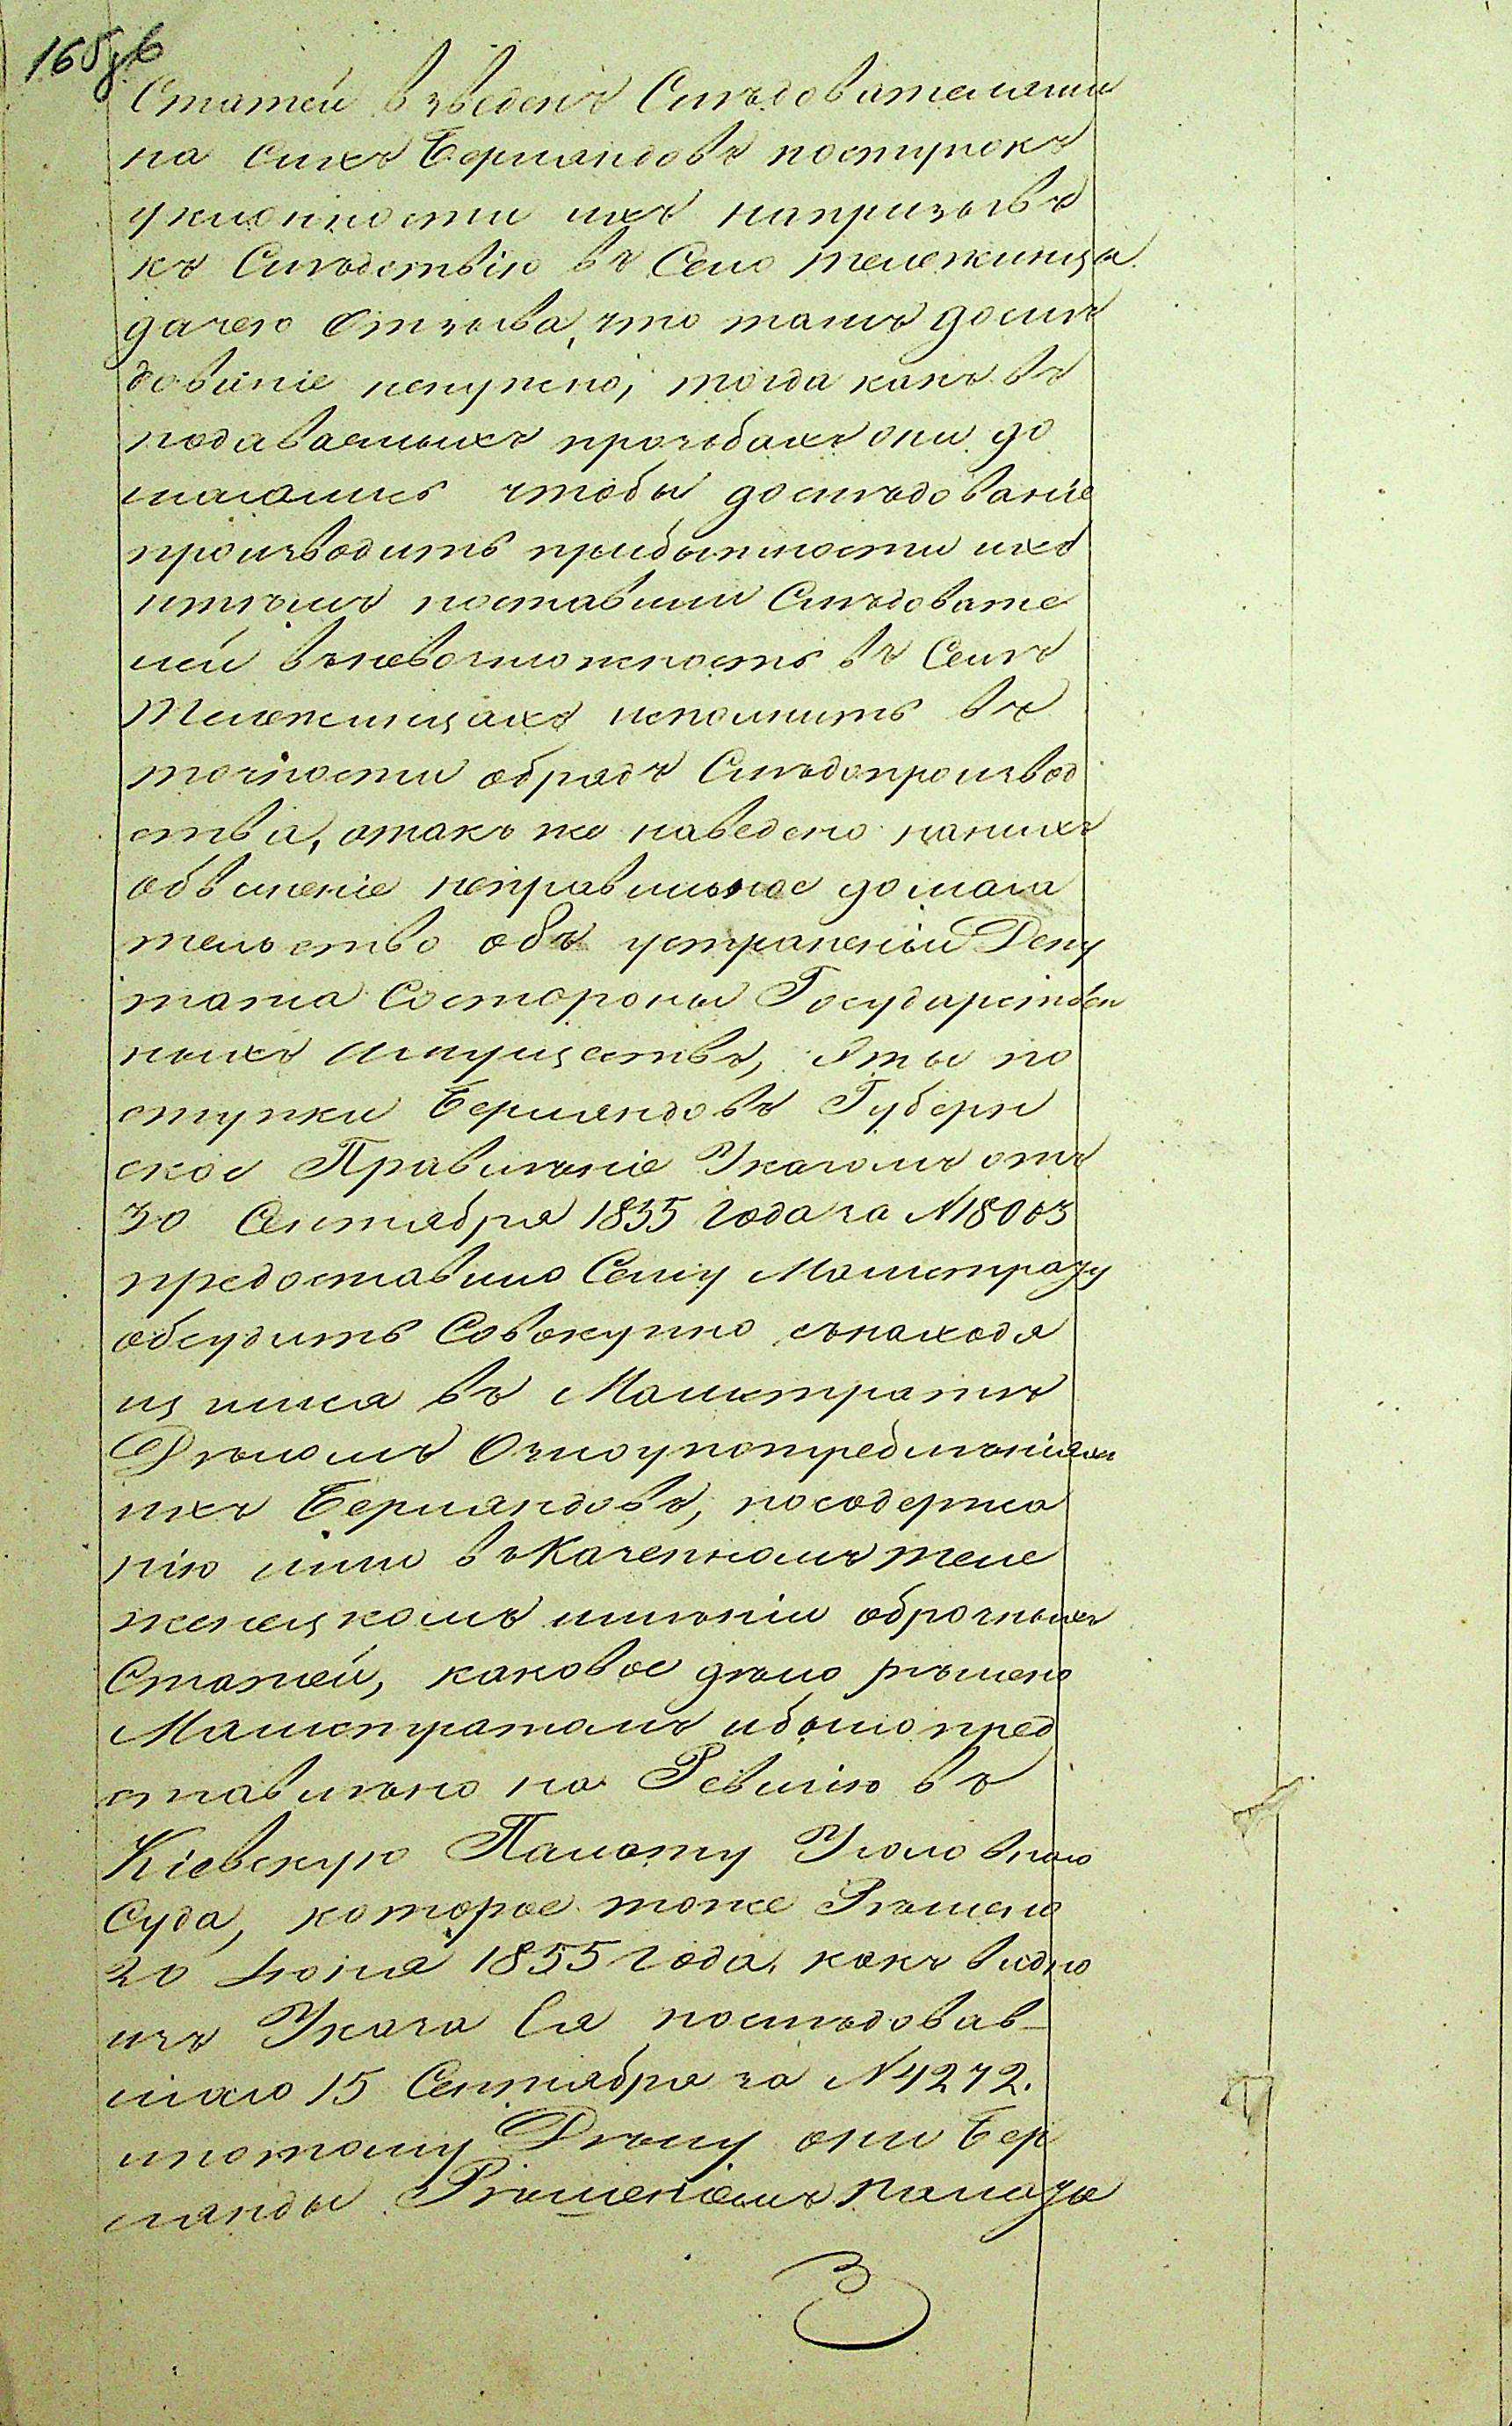 165 зв
Статей взведенъ Слѣдователями
на сихъ Берляндовъ поступокъ
уклонности ихъ напризывъ
къ Слѣдствію въ Село Тележинца
дачею Отзыва, что тамъ дослѣ
дованіе ненужно, тогда какъ въ
подаваемыхъ прозьбахъ они до
магались чтобы дослѣдованіе
производить прибытности ихъ
итѣмъ поставили Слѣдовате
лей вневозможность въ Селѣ
Тележинцахъ исполнить въ
точности обрядъ Слѣдопроизвод
ства, атакъ же наведено нанихъ
обвиненіе неправильное домога
тельство объ устраненіи Депу
тата Состороны Государствен
ныхъ Имуществъ, Эты по
ступки Берляндовъ Губерн
ское Правленіе Указомъ отъ
30 Сентября 1855 года за №18003
предоставило Сему Магистрату
обсудить Совокупно снаходя
щимся въ Магистратѣ
Дѣломъ Озлоупотребленіяхъ
ихъ Берляндовъ, посодержа
нію ими въ Казенномъ Теле
женецкомъ имѣніи оброчныхъ
Статей, каковое дѣло рѣшено
Магистратомъ ибыло пред
ставлено на Ревизію въ
Кіевскую Палату Уголовнаго
Суда, которое тоже Рѣшено
20 Іюля 1855 года, какъ видно
изъ Указа Ея послѣдовав-
шаго 15 Сентября за №4272.
ипотому Дѣлу они Бер
лянды Рѣшеніемъ палаты